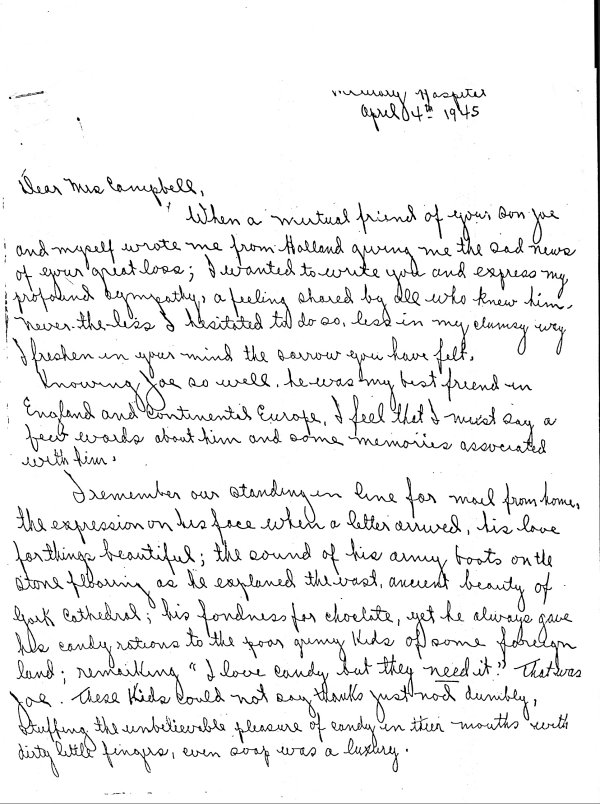 Military Hospital
April 4th 1945
Dear Mrs Campbell,
When a mutual friend of your son Joe
and myself wrote me from Holland giving me the sad news
of your great loss; I wanted to write you and express my
profound sympathy, a feeling shared by all who knew him.
never-the-less I hesitated to do so, less in my clumsy way
I freshen in your mind the sorrow you have felt.
Knowing Joe so well, he was my best friend in
England and continental Europe, I feel that I must say a
few words about him and some memories associated
with him.
I remember our standing in line for mail from home,
the expression on his face when a letter arrived, his love
for things beautiful; the sound of his army boots on the
stone flooring as he explaned the vast, ancient beauty of
York Cathedral; his fondness for choclate, yet he always gave
his candy rations to the poor grimy Kids of some foreign
land; remarking "I love candy but they need it." That was
Joe. These Kids could not say thanks just nod dumbly,
stuffing the unbelievable pleasure of candy in their mouths with
dirty little fingers, even soap was a luxury.